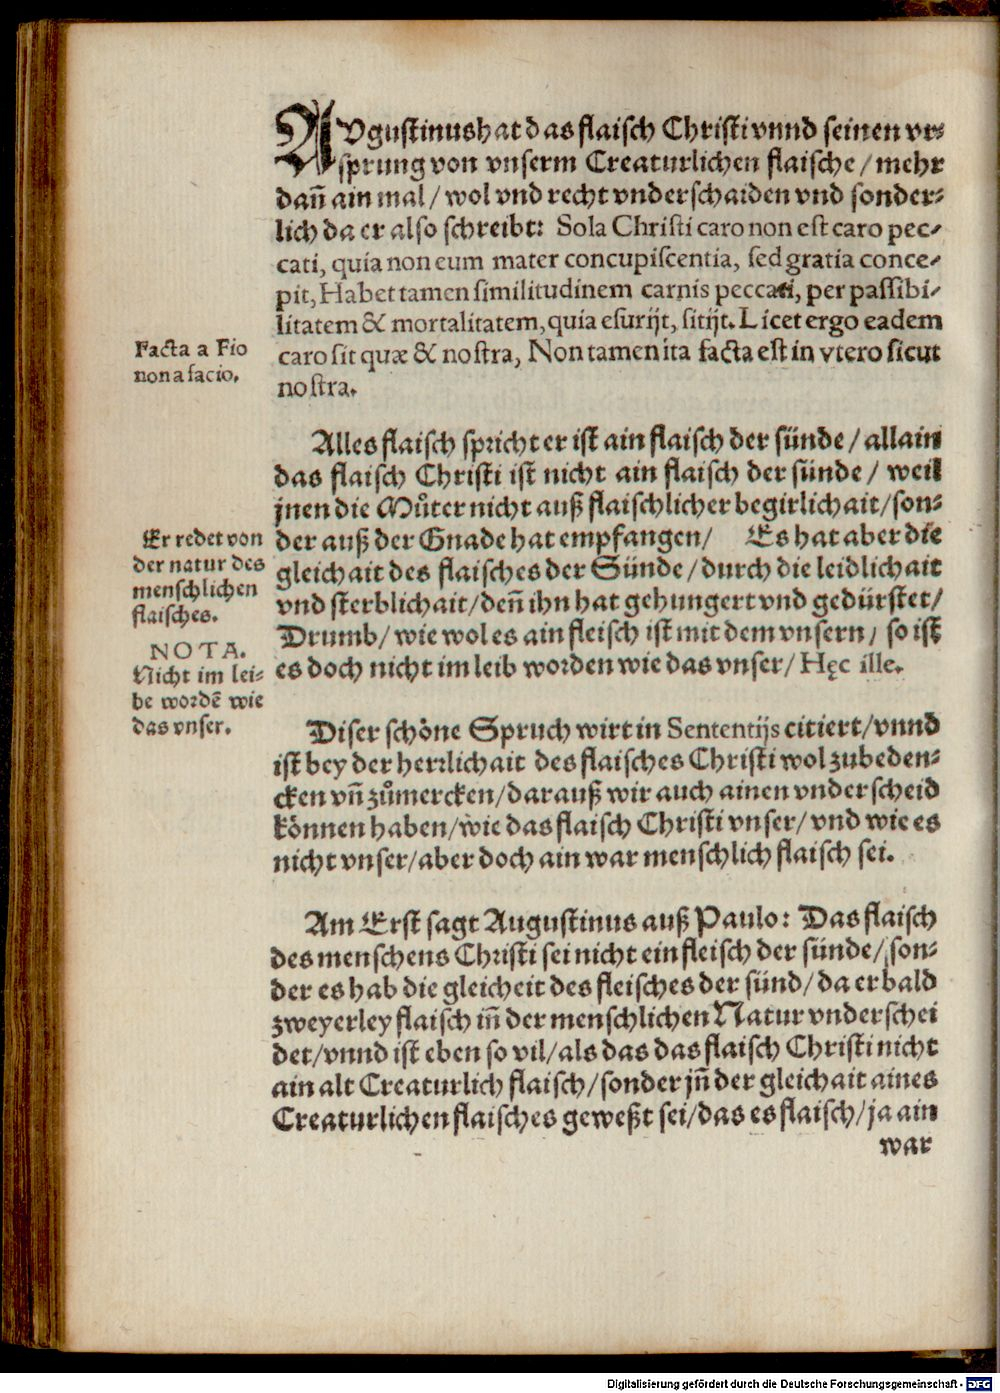 AVgustinus hat das flaisch Christi vnnd seinen vr⸗
sprung von vnserm Creaturlichen flaische / mehr
dañ ain mal / wol vnd recht vnderschaiden vnd sonder⸗
lich da er also schreibt: Sola Christi caro non est caro pec⸗
cati, quia non eum mater concupiscentia, sed gratia conce⸗
pit, Habet tamen similitudinem carnis peccati, per passibi⸗
litatem & mortalitatem, quia esurijt, sitijt. Licet ergo eadem
caro sit quæ & nostra, Non tamen ita facta est in vtero sicut
nostra.
Facta a Fio
non a facio.
Alles flaisch spricht er ist ain flaisch der sünde / allain
das flaisch Christi ist nicht ain flaisch der sünde / weil
jnen die Muͦter nicht auß flaischlicher begirlichait / son⸗
der auß der Gnade hat empfangen / Es hat aber die
gleichait des flaisches der Sünde / durch die leidlichait
vnd sterblichait / deñ ihn hat gehungert vnd gedürstet /
Drumb / wie wol es ain fleisch ist mit dem vnsern / so ist
es doch nicht im leib worden wie das vnser / Hęc ille.
Er redet von
der natur des
menschlichen
flaisches.
NOTA.
Nicht im lei⸗
be wordē wie
das vnser.
Diser schöne Spruch wirt in Sententijs citiert / vnnd
ist bey der herrlichait des flaisches Christi wol zubeden⸗
cken vñ zuͦmercken / darauß wir auch ainen vnderscheid
können haben / wie das flaisch Christi vnser / vnd wie es
nicht vnser / aber doch ain war menschlich flaisch sei.
Am Erst sagt Augustinus auß Paulo: Das flaisch
des menschens Christi sei nicht ein fleisch der sünde / son⸗
der es hab die gleicheit des fleisches der sünd / da er bald
zweyerley flaisch iñ der menschlichen Natur vnderschei
det / vnnd ist eben so vil / als das das flaisch Christi nicht
ain alt Creaturlich flaisch / sonder jñ der gleichait aines
Creaturlichen flaisches geweßt sei / das es flaisch / ja ain
war
Digitalisierung gefördert durch die Deutsche Forschungsgemeinschaft - DFG